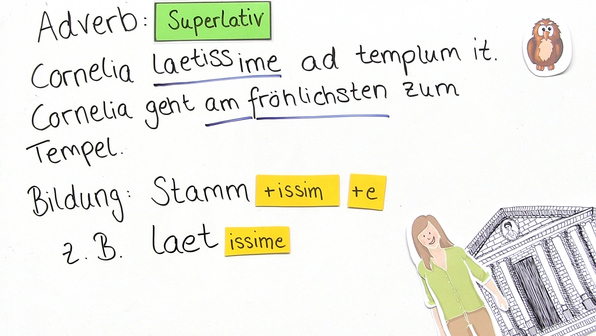 Adverb: Superlativ
Cornelia laetissime ad templum it.
Cornelia geht am fröhlichsten zum
Tempel.
Bildung: Stamm +issim +e
z. B. laet issime